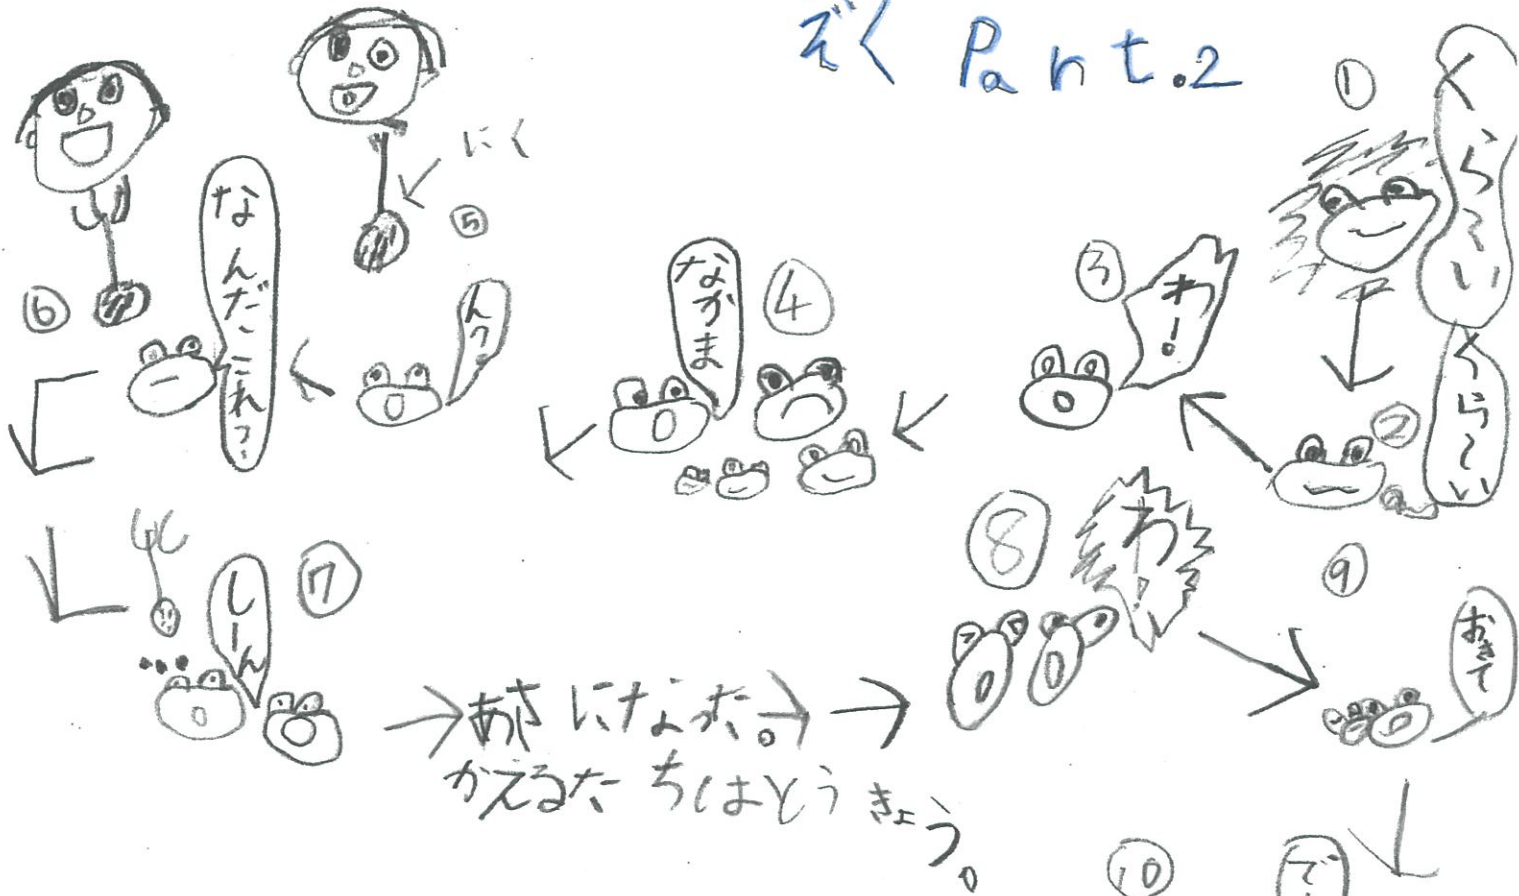 ぞく Part.2
①
くら〜い
②
くら〜い
③
わ!
④
なかま
⑤
にく
ん?
⑥
なんだこれ?
⑦
しーん
あさになった。
かえるたちはとうきょう。
⑧
わ!
⑨
おきて
⑩
で